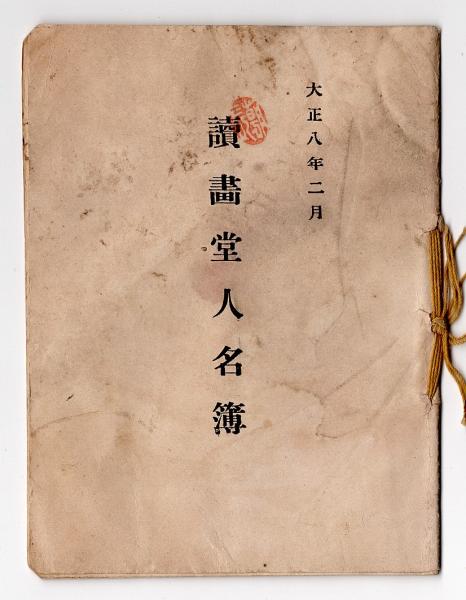 大正八年二月
讀畫堂人名簿